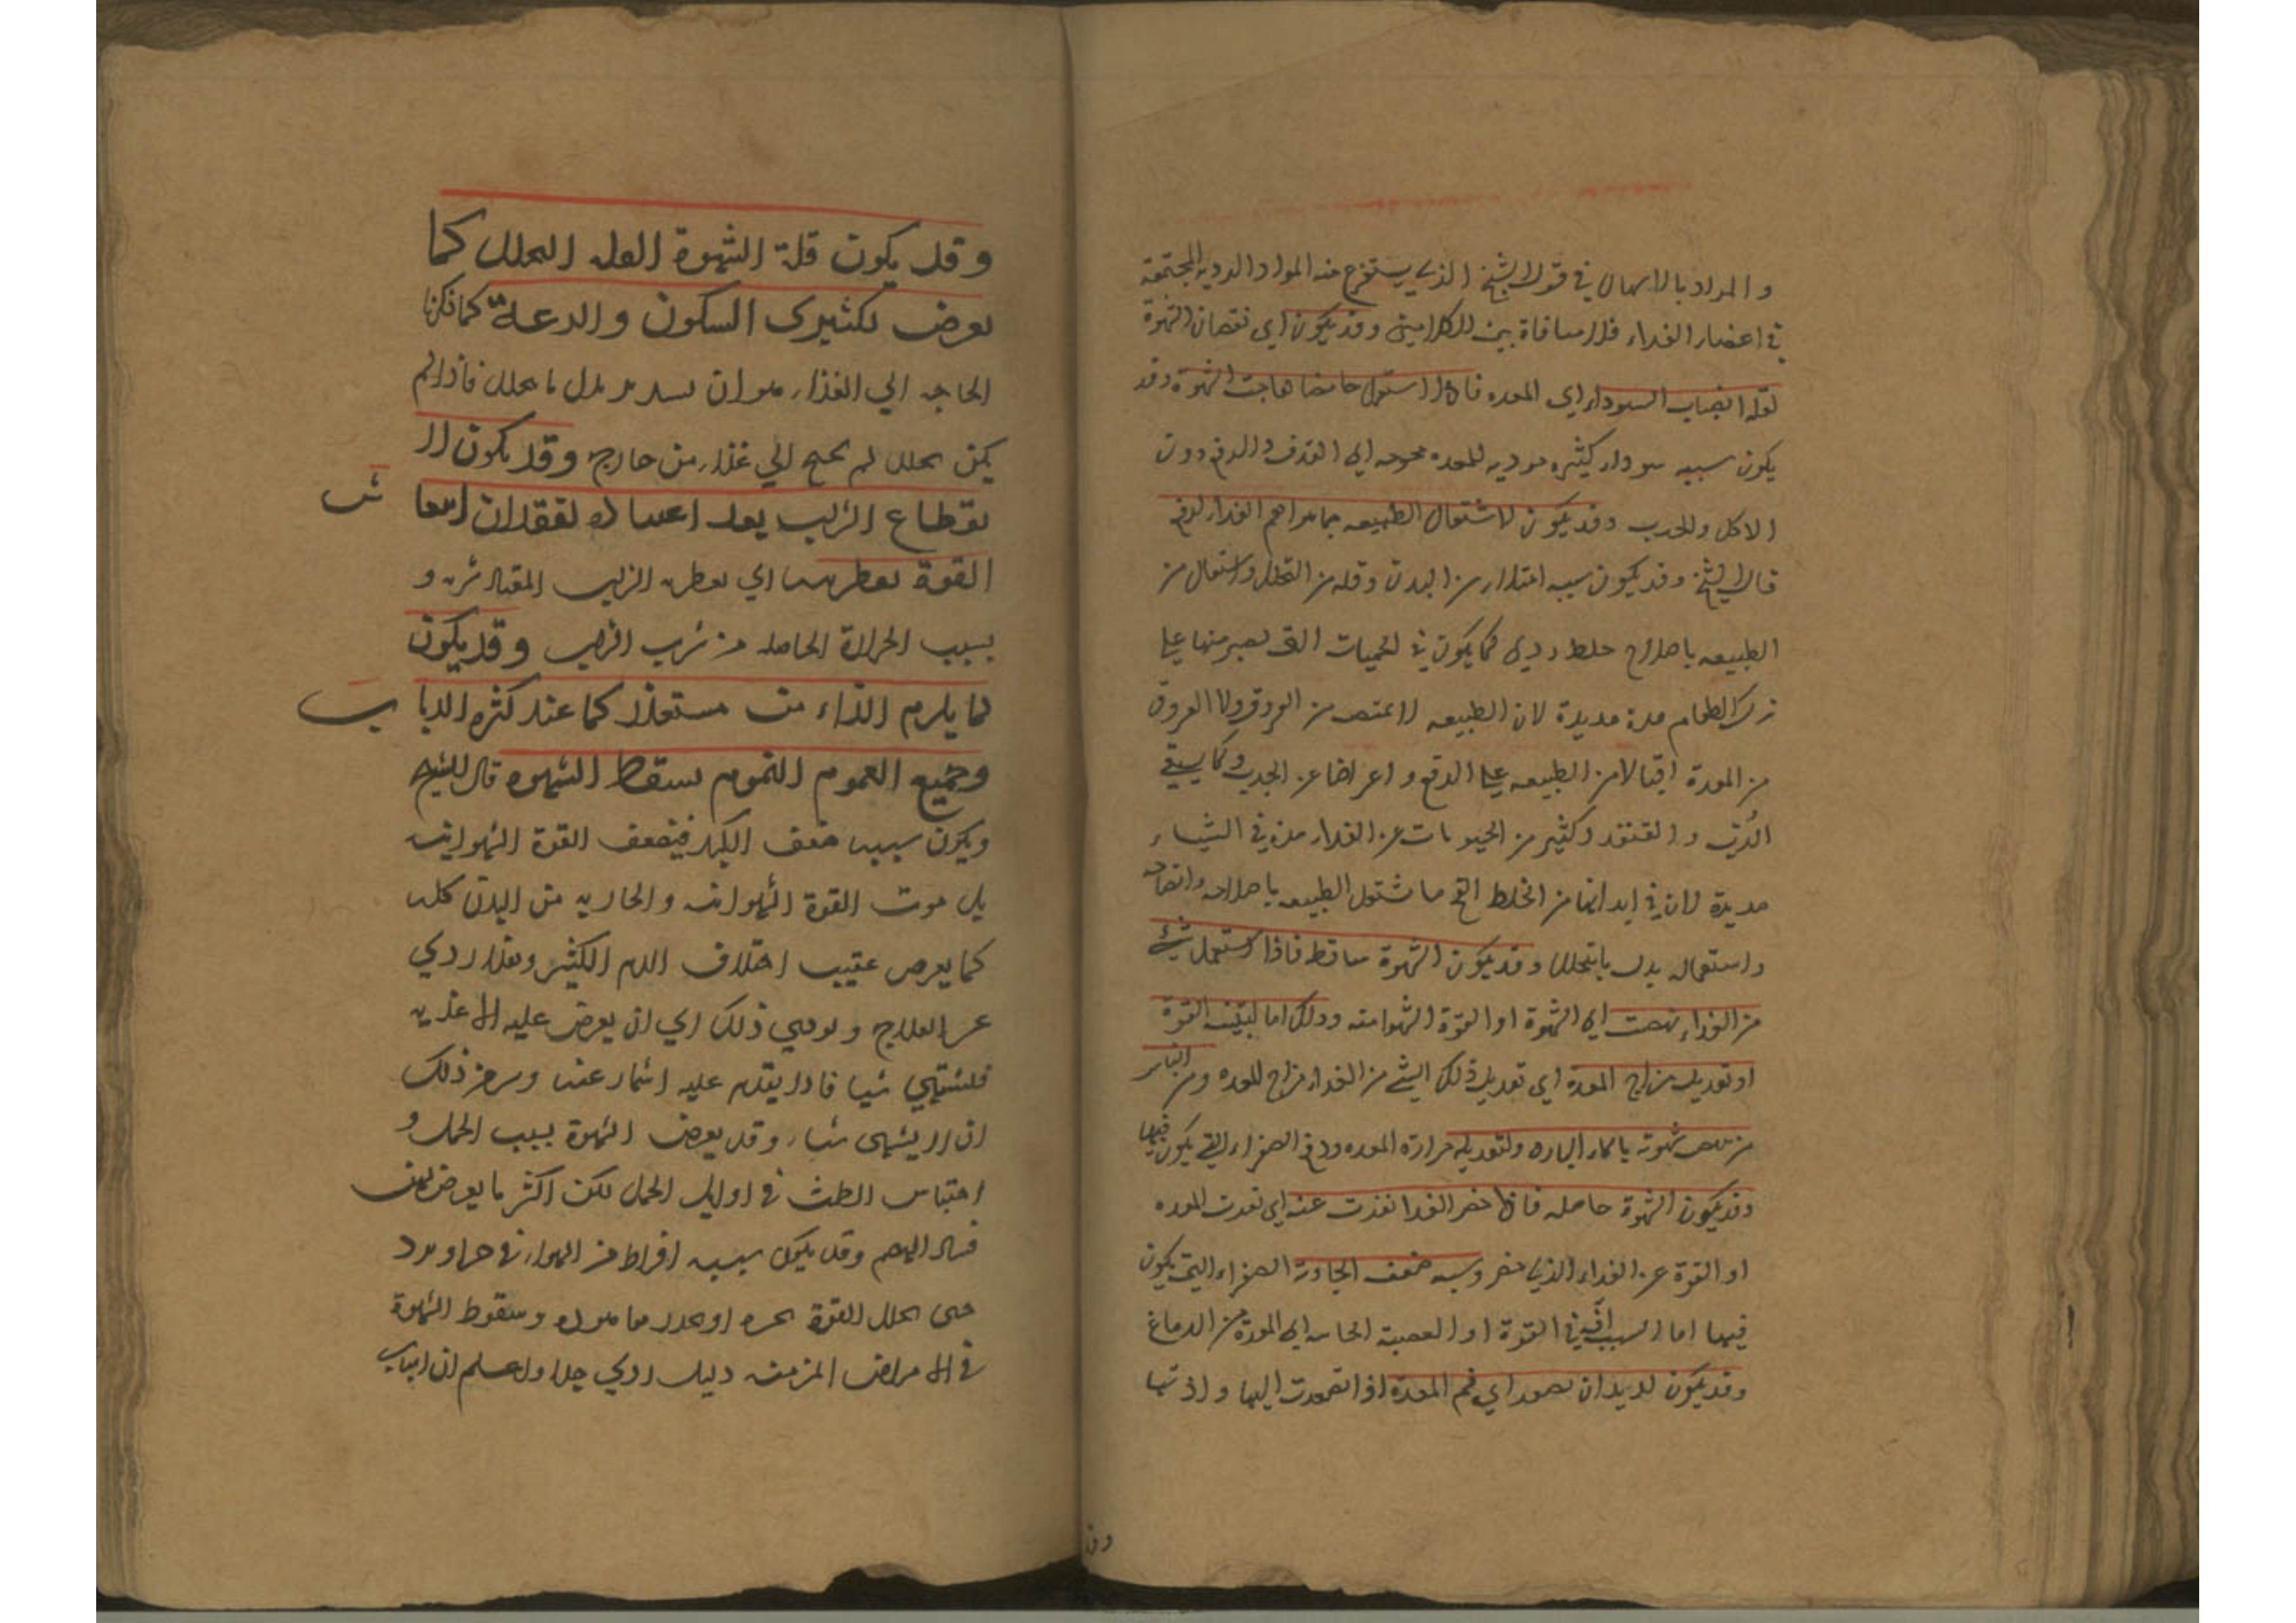 والمراد بالاسهال في قول الشيخ الذي يستفرغ منه المواد الرديه المجتمعة
في اعضاء الغداء فلا منافاة بين الكلامين وقد يكون اي نقصان الشهوة
لقله انصباب السوداء اي المعده فاذا استعمل حامضا هاجت الشهوة وقد
يكون سببه سوداء كثيره موديه للمعده محوجه الي القذف والدفع دون
الاكل والجدب وقد يكون لاشتغال الطبيعه بما هو اهم الغداء لدفع
قال الشيخ وقد يكون سببه امتلاء من البدن وقله من التحلل واشتغال من
الطبيعه باصلاح خلط ردي كما يكون في الحميات التي يصبر منها علي
ترك الطعام مدة مديدة لان الطبيعه لا تمتص من العروق ولا العروق
من المعدة اقبالا من الطبيعه علي الدفع واعراضا عن الجدب وكما يبقي
الدب والقنفد وكثير من الحيوانات عن الغداء مدة في الشتاء
مديدة لان في ابدانها من الخلط الفج ما تشتغل الطبيعه باصلاحه وانضاجه
واستعماله بدل ما يتحلل وقد يكون الشهوة ساقطه فاذا استعمل شيئ
من الغداء نهضت اي الشهوة او القوة الشهوانيه ودلك اما لتنبيه القوة
او تعديل مزاج المعدة اي تعديل ذلك الشئ من الغداء مزاج المعده ومن الناس
من تنهض شهوته بالماء البارد ولتعديله حرارة المعده ودفع الصفراء التي يكون فيها
وقد يكون الشهوة حاصله فاذا حضر الغدا نفرت عنه اي نفرت المعده
او القوة عن الغداء الذي حضر وسببه ضعف الجادبة الصفراء التي يكون
فيها اما لسبب افة في القوة او العصبة الجايه الي المعدة من الدماغ
وقد يكون لديدان تصعد اي فم المعدة اذا تصعدت اليها واذتها
وقد
وقد يكون قلة الشهوة لقله التحلل كما
يعرض لكثيري السكون والدعة كما ذكرنا
الحاجه الي الغذاء هو ان يسد به بدل ما يتحلل فاذا لم
يكن تحلل لم يحتج الي غذاء من خارج وقد يكون لا
نقطاع الشرب بعد اعتياده لفقدان انتعا ش
القوة بعطريته اي بعطريه الشرب المقدار شربه و
بسبب الحرارة الحاصله من شرب الشرب وقد يكون
لما يلزم الغذاء من مستقذر كما عند كثره الذبا ب
وجميع الغموم الهموم يسقط الشهوه قال الشيخ
ويكون سببه ضعف الكبد فيضعف القوة الشهوانيه
بل موت القوة الشهوانيه والجاذبه من البدن كله
كما يعرض عقيب اختلاف الدم الكثير وهذا ردي
عسر العلاج ويودي ذلك الي ان يعرض عليه الاغذيه
فيشتهي شيا فاذا يقدم عليه اشمأز عنه وشر من ذلك
ان لا يشتهي شيا وقد يعرض الشهوة بسبب الحمل و
احتباس الطمث في اوايل الحمل لكن اكثر ما يعرض لهن
فساد الهضم وقد يكون سببه افراط من الهواء في حر او برد
حتي تحلل القوة بحره او يخدرها ببرده وسقوط الشهوة
في الامراض المزمنه دليل ردي جدا واعلم ان اسباب